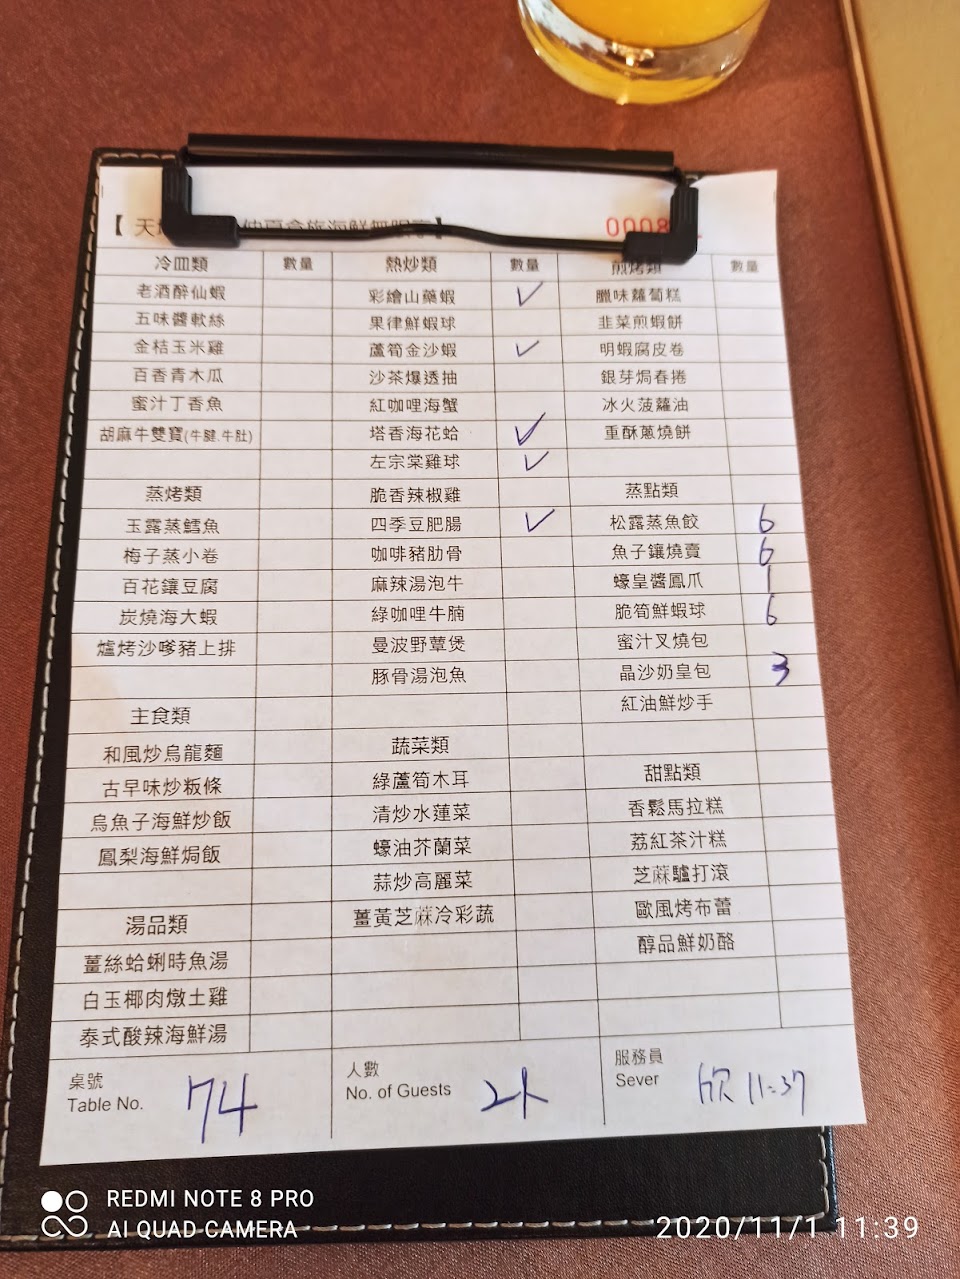 【 天
0008
冷皿類 數量 熱炒類 數量 煎烤類 數量
老酒醉仙蝦 彩繪山藥蝦 ✓ 臘味蘿蔔糕
五味醬軟絲 果律鮮蝦球 韭菜煎蝦餅
金桔玉米雞 蘆筍金沙蝦 ✓ 明蝦腐皮卷
百香青木瓜 沙茶爆透抽 銀芽焗春捲
蜜汁丁香魚 紅咖哩海蟹 冰火菠蘿油
胡麻牛雙寶(牛腱.牛肚) 塔香海花蛤 ✓ 重酥蔥燒餅
左宗棠雞球 ✓
蒸烤類 脆香辣椒雞 蒸點類
玉露蒸鱈魚 四季豆肥腸 ✓ 松露蒸魚餃 6
梅子蒸小卷 咖啡豬肋骨 魚子鑲燒賣 6
百花鑲豆腐 麻辣湯泡牛 蠔皇醬鳳爪 1
炭燒海大蝦 綠咖哩牛腩 脆筍鮮蝦球 6
爐烤沙嗲豬上排 曼波野蕈煲 蜜汁叉燒包
豚骨湯泡魚 晶沙奶皇包 3
主食類 紅油鮮炒手
和風炒烏龍麵 蔬菜類
古早味炒粄條 綠蘆筍木耳 甜點類
烏魚子海鮮炒飯 清炒水蓮菜 香鬆馬拉糕
鳳梨海鮮焗飯 蠔油芥蘭菜 荔紅茶汁糕
蒜炒高麗菜 芝蔴驢打滾
湯品類 薑黃芝蔴冷彩蔬 歐風烤布蕾
薑絲蛤蜊時魚湯 醇品鮮奶酪
白玉椰肉燉土雞
泰式酸辣海鮮湯
桌號 人數 服務員
Table No. 74 No. of Guests 2大 Sever 欣 11:37
REDMI NOTE 8 PRO
AI QUAD CAMERA
2020/11/1 11:39